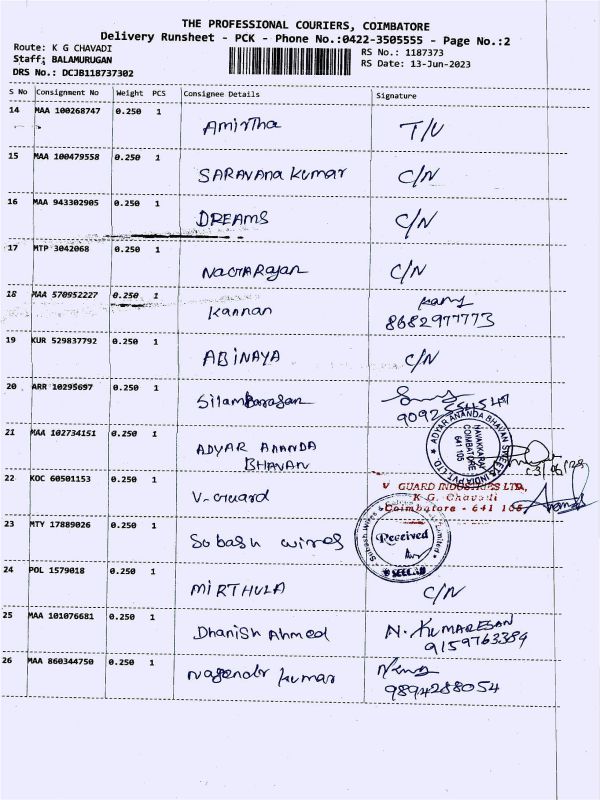 THE PROFESSIONAL COURIERS, COIMBATORE
Delivery Runsheet - PCK - Phone No.:0422-3505555 - Page No.:2
Route: K G CHAVADI
Staff: BALAMURUGAN
DRS No.: DCJB118737302
RS No.: 1187373
RS Date: 13-Jun-2023
S No Consignment No Weight PCS Consignee Details Signature
14 MAA 100268747 0.250 1 Amirtha T/U
15 MAA 100479558 0.250 1 SARAVANA KUMAR C/N
16 MAA 943302905 0.250 1 DREAMS C/N
17 MTP 3042068 0.250 1 NAGARAjan C/N
18 MAA 570952227 0.250 1 Kannan
8682977773
19 KUR 529837792 0.250 1 ABINAYA C/N
20 ARR 10295697 0.250 1 Silambarasan
21 MAA 102734151 0.250 1 ADYAR ANANDA
BHAVAN
ADYAR ANANDA BHAVAN SWEETS INDIA PVT. LTD
NAVAKKARAI
COIMBATORE
641 105
22 KOC 60501153 0.250 1 V-Guard
V GUARD INDUSTRIES LTD,
K G. Chavadi
Coimbatore - 641 105
23 MTY 17889026 0.250 1 Subash wires
Received
24 POL 1579018 0.250 1 MIRTHULA C/N
25 MAA 101076681 0.250 1 Dhanish Ahmed N. KUMARESAN
9159763389
26 MAA 860344750 0.250 1 Nagendr kumar
9894288054